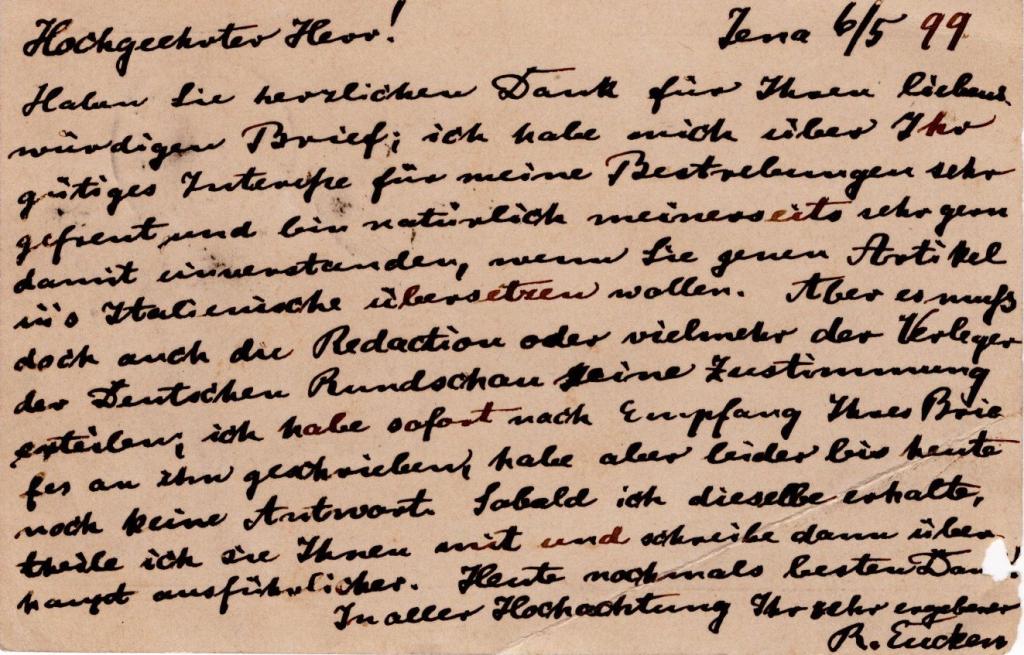 Hochgeehrter Herr! Jena 6/5 99
Haben Sie herzlichen Dank für Ihren liebens-
würdigen Brief; ich habe mich über Ihr
gütiges Interesse für meine Bestrebungen sehr
gefreut, und bin natürlich meinerseits sehr gern
damit einverstanden, wenn Sie jenen Artikel
in's Italienische übersetzen wollen. Aber es muß
doch auch die Redaction oder vielmehr der Verleger
der Deutschen Rundschau seine Zustimmung
erteilen; ich habe sofort nach Empfang Ihres Brie
fes an ihn geschrieben, habe aber leider bis heute
noch keine Antwort. Sobald ich dieselbe erhalte,
theile ich sie Ihnen mit und schreibe dann über-
haupt ausführlicher. Heute nochmals besten Dank!
In aller Hochachtung Ihr sehr ergebener
R. Eucken